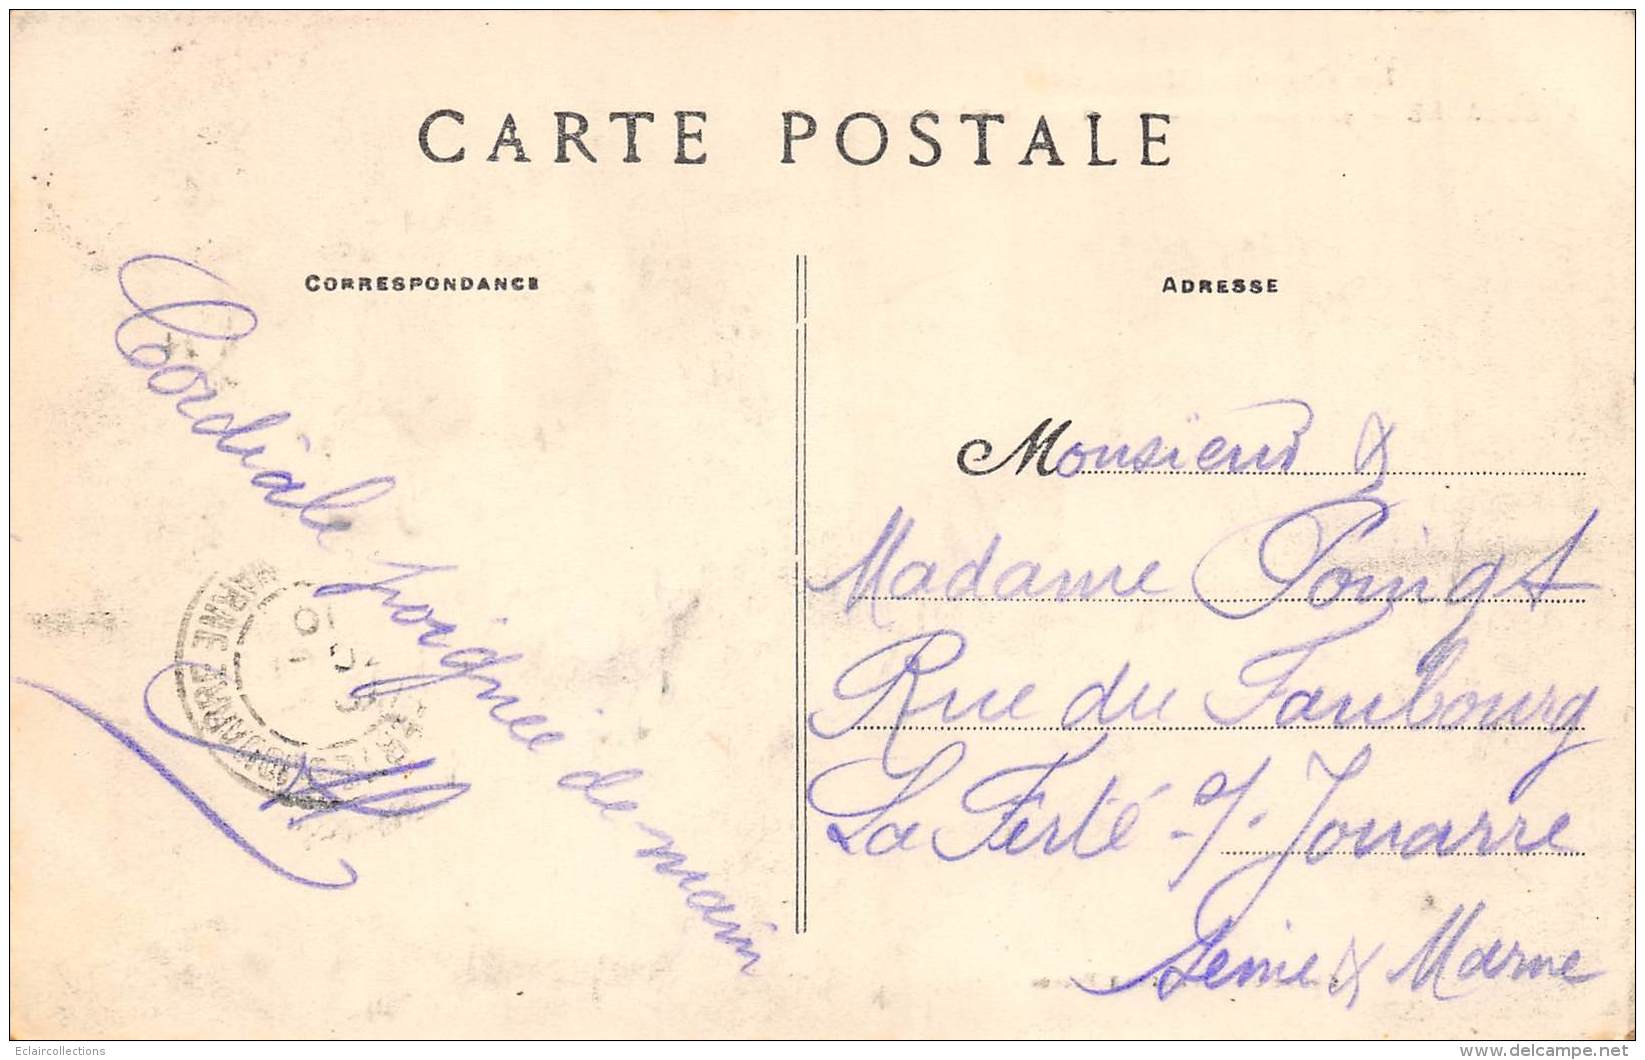 CARTE POSTALE
CORRESPONDANCE
ADRESSE
Cordiale poignée de main
Monsieur &
Madame Poingt
Rue du Faubourg
La Ferté-s/-Jouarre
Seine & Marne
Eclaircollections
delcampe.net